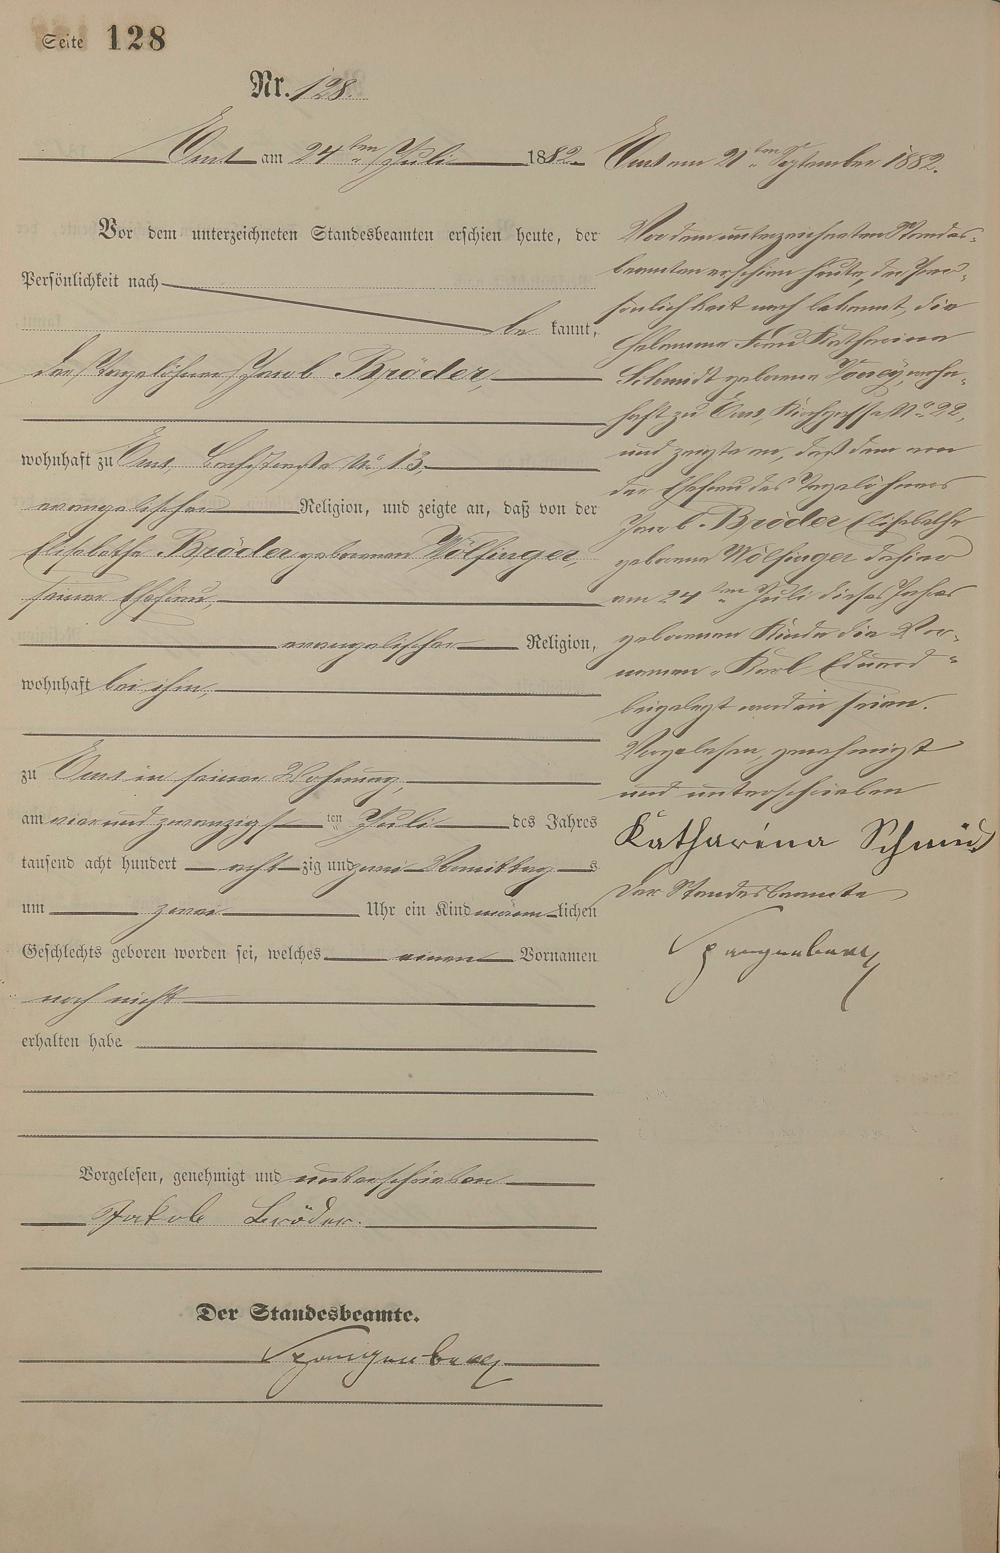 Seite 128
Nr. 128.
Ems am 24ten Juli 1882.
Vor dem unterzeichneten Standesbeamten erschien heute, der
Persönlichkeit nach
be kannt,
der Tagelöhner Jacob Bröder,
wohnhaft zu Ems, Bachstraße No 13,
evangelischer Religion, und zeigte an, daß von der
Elisabethe Bröder geborenen Wölfinger,
seiner Ehefrau,
evangelischer Religion,
wohnhaft bei ihm,
zu Ems in seiner Wohnung,
am vier und zwanzigsten Juli des Jahres
tausend acht hundert acht zig und zwei Vormittags
um zwei Uhr ein Kind männlichen
Geschlechts geboren worden sei, welches einen Vornamen
noch nicht
erhalten habe
Vorgelesen, genehmigt und unterschrieben
Jakob Bröder.
Der Standesbeamte.
Spangenberg
Ems am 21ten September 1882.
Vor dem unterzeichneten Standes-
beamten erschien heute, der Per-
sönlichkeit nach bekannt, die
Hebamme Frau Katharina
Schmidt geborene wohn-
haft zu Ems, Kirchgasse No 22,
und zeigte an, daß dem von
der Ehefrau des Tagelöhners
Jacob Bröder, Elisabethe
geborene Wölfinger dahier
am 24ten Juli dieses Jahres
geborenen Kinde die Vor-
namen "Karl Eduard"
beigelegt worden seien.
Vorgelesen, genehmigt
und unterschrieben
Katharina Schmidt
Der Standesbeamte
Spangenberg